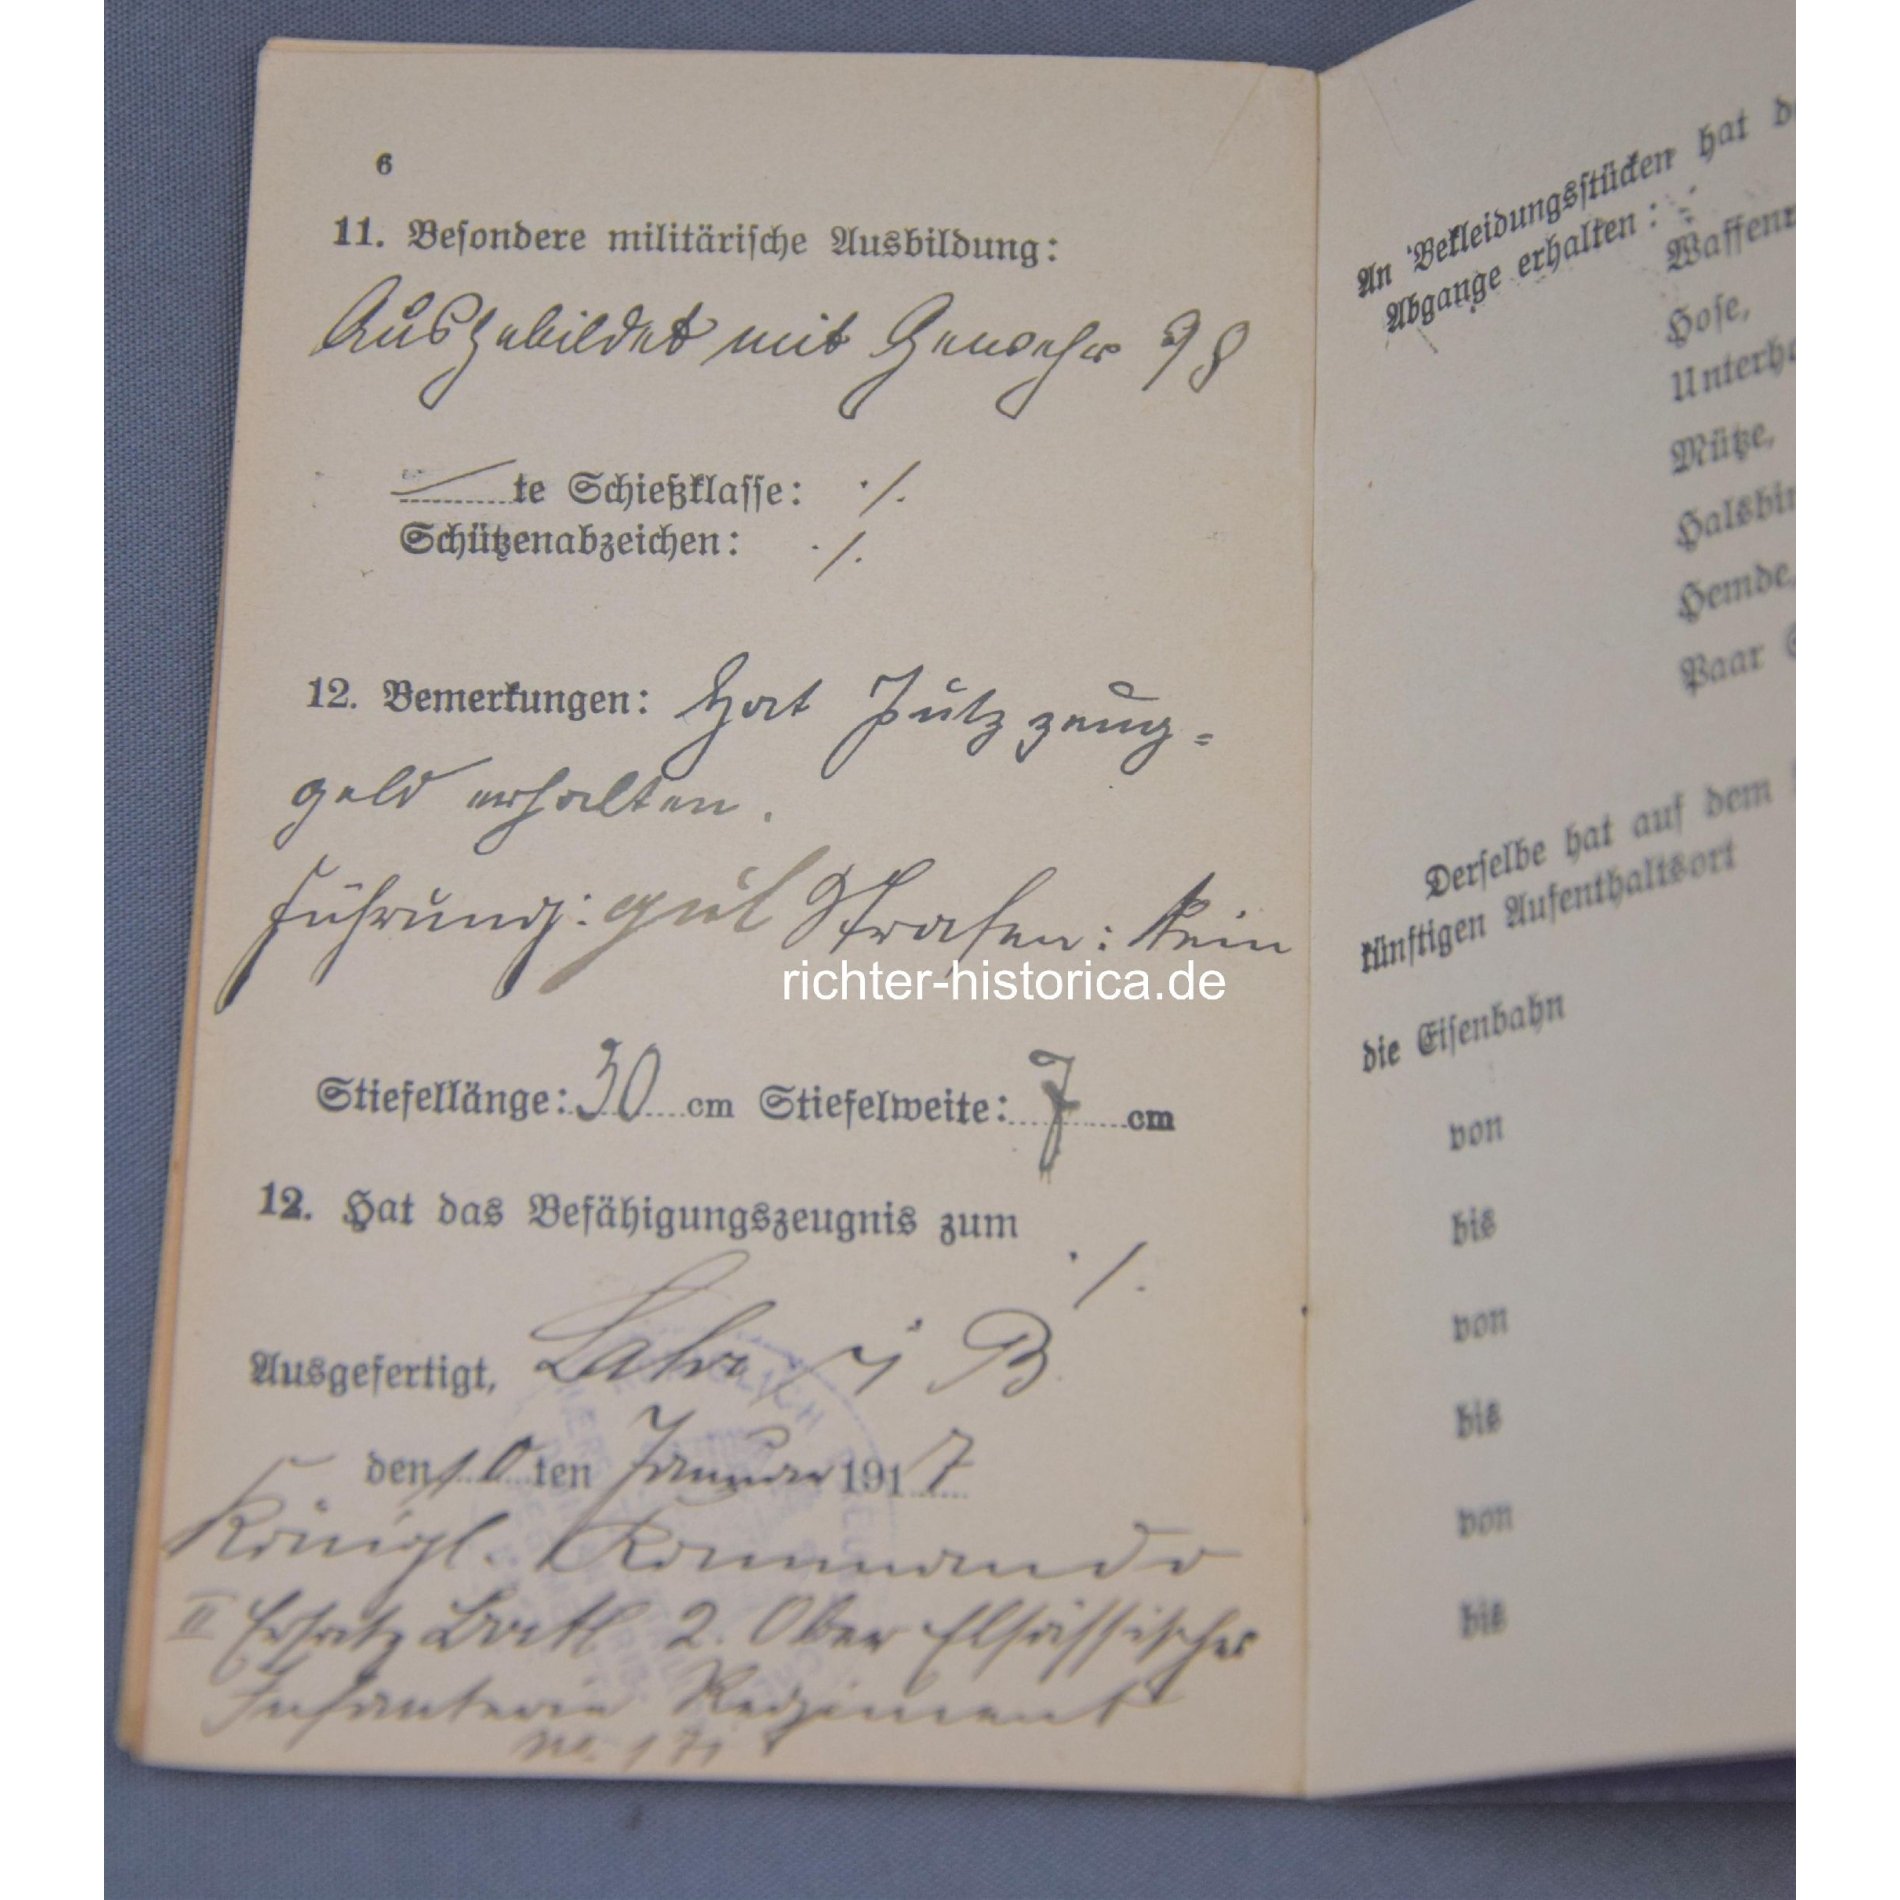 6
11. Besondere militärische Ausbildung:
Ausgebildet mit Gewehr 98
te Schießklasse: ./.
Schützenabzeichen: ./.
12. Bemerkungen: Hat Putzzeug=
geld erhalten.
Führung: gut Strafen: Kein
richter-historica.de
Stiefellänge: 30 cm Stiefelweite: 7 cm
12. Hat das Befähigungszeugnis zum
./.
Ausgefertigt, Lahr i B
den 10ten Januar 1917
Königl. Kommando
II Ersatz Batl 2. Ober Elsässisches
Infanterie Regiment
No. 171
An Bekleidungsstücken hat de
Abgange erhalten:
Waffenr
Hose,
Unterho
Mütze,
Halsbin
Hemde,
Paar
Derselbe hat auf dem
künftigen Aufenthaltsort
die Eisenbahn
von
bis
von
bis
von
bis